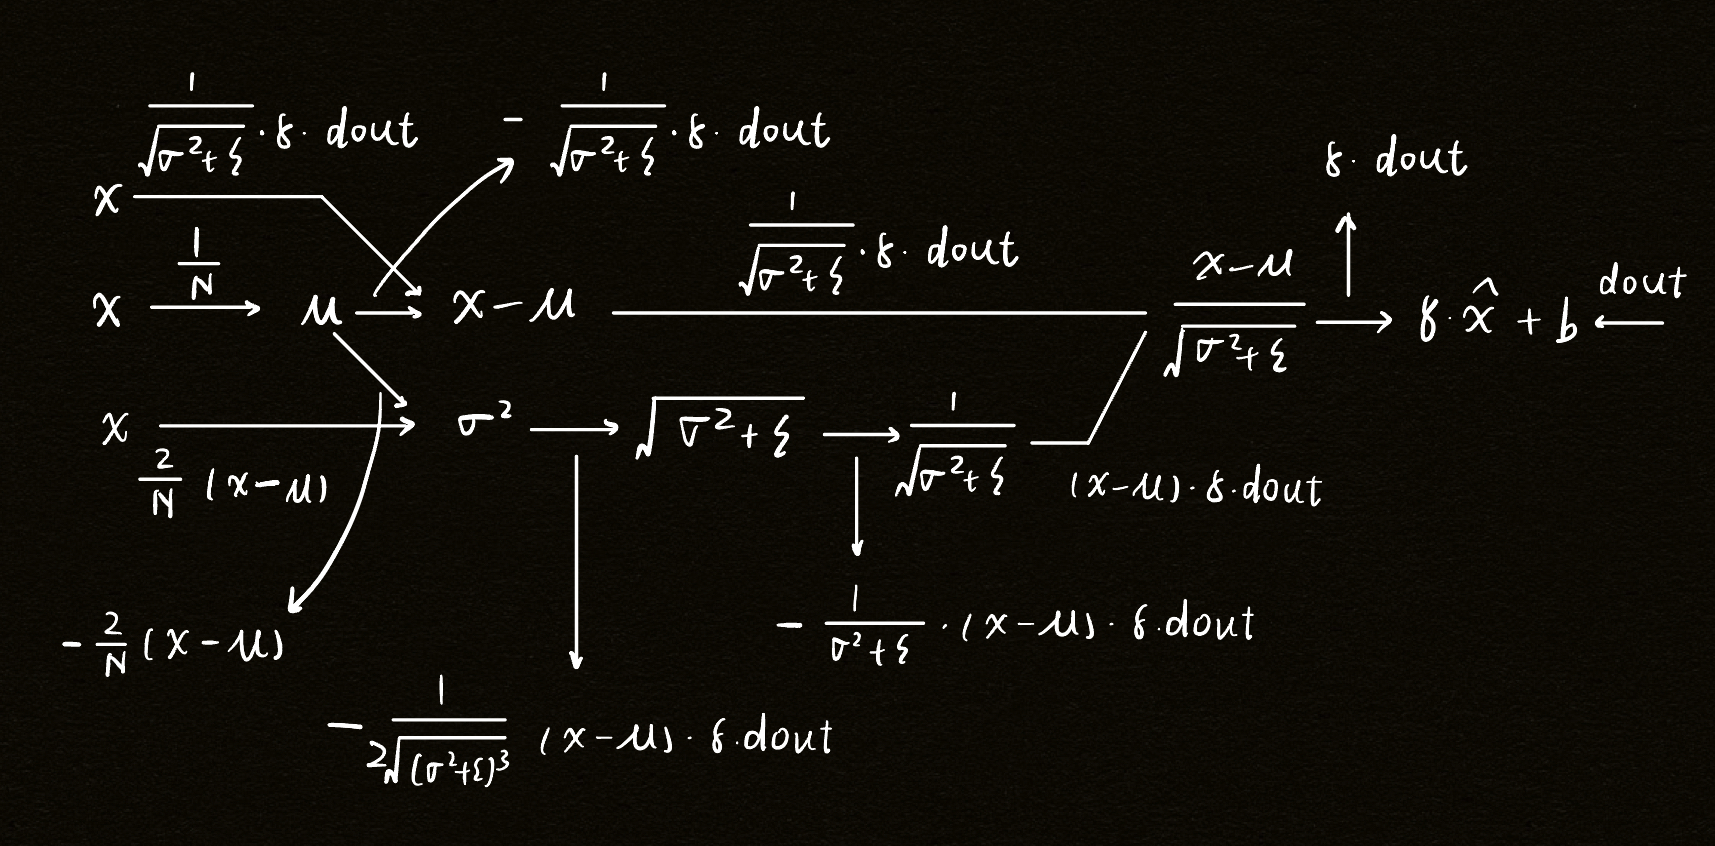 1/√(σ²+ξ) · γ · dout
- 1/√(σ²+ξ) · γ · dout
γ · dout
x
1/√(σ²+ξ) · γ · dout
x 1/N μ x-μ (x-μ)/√(σ²+ξ) γ·x̂+b dout
x σ² √(σ²+ξ) 1/√(σ²+ξ)
2/N (x-μ)
(x-μ)·γ·dout
-2/N (x-μ)
- 1/(σ²+ξ) · (x-μ) · γ·dout
- 1/(2√(σ²+ξ)³) (x-μ) · γ·dout